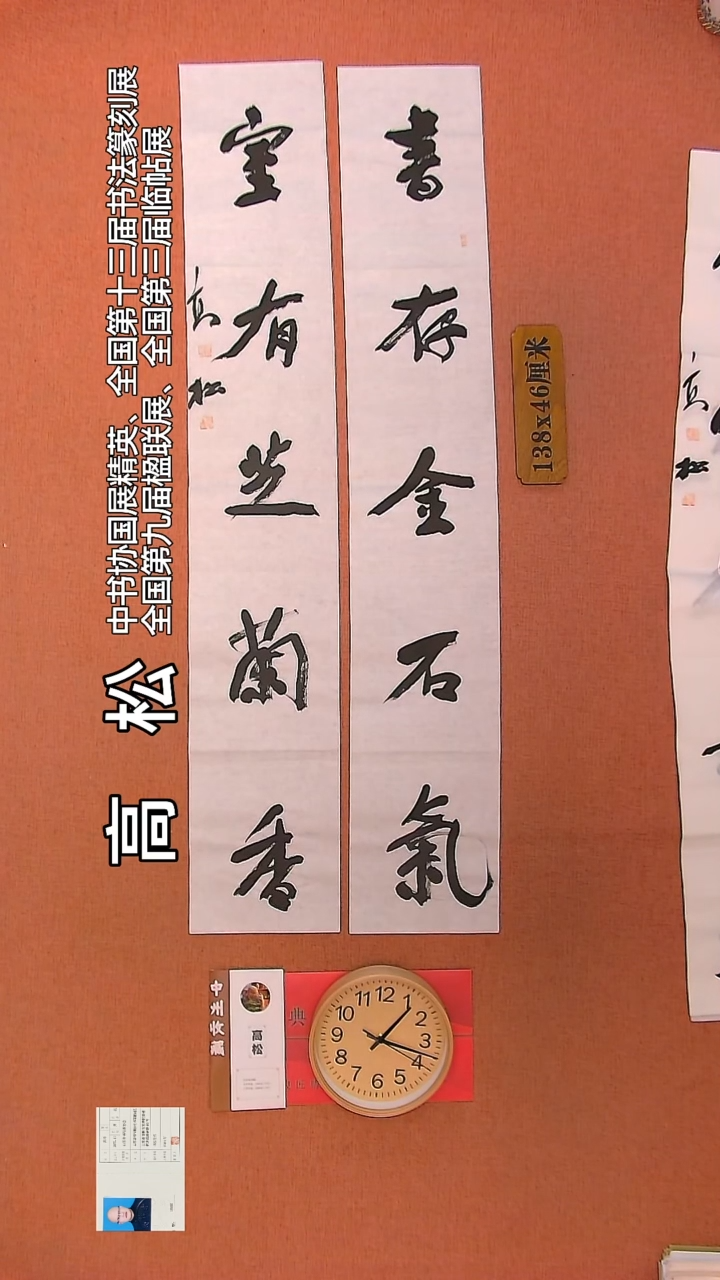 中书协国展精英、全国第十三届书法篆刻展
全国第九届楹联展、全国第三届临帖展
高 松
書存金石氣
室有芝蘭香
高松
138x46厘米
高松
高松
典
12
1
2
3
4
5
6
7
8
9
10
11